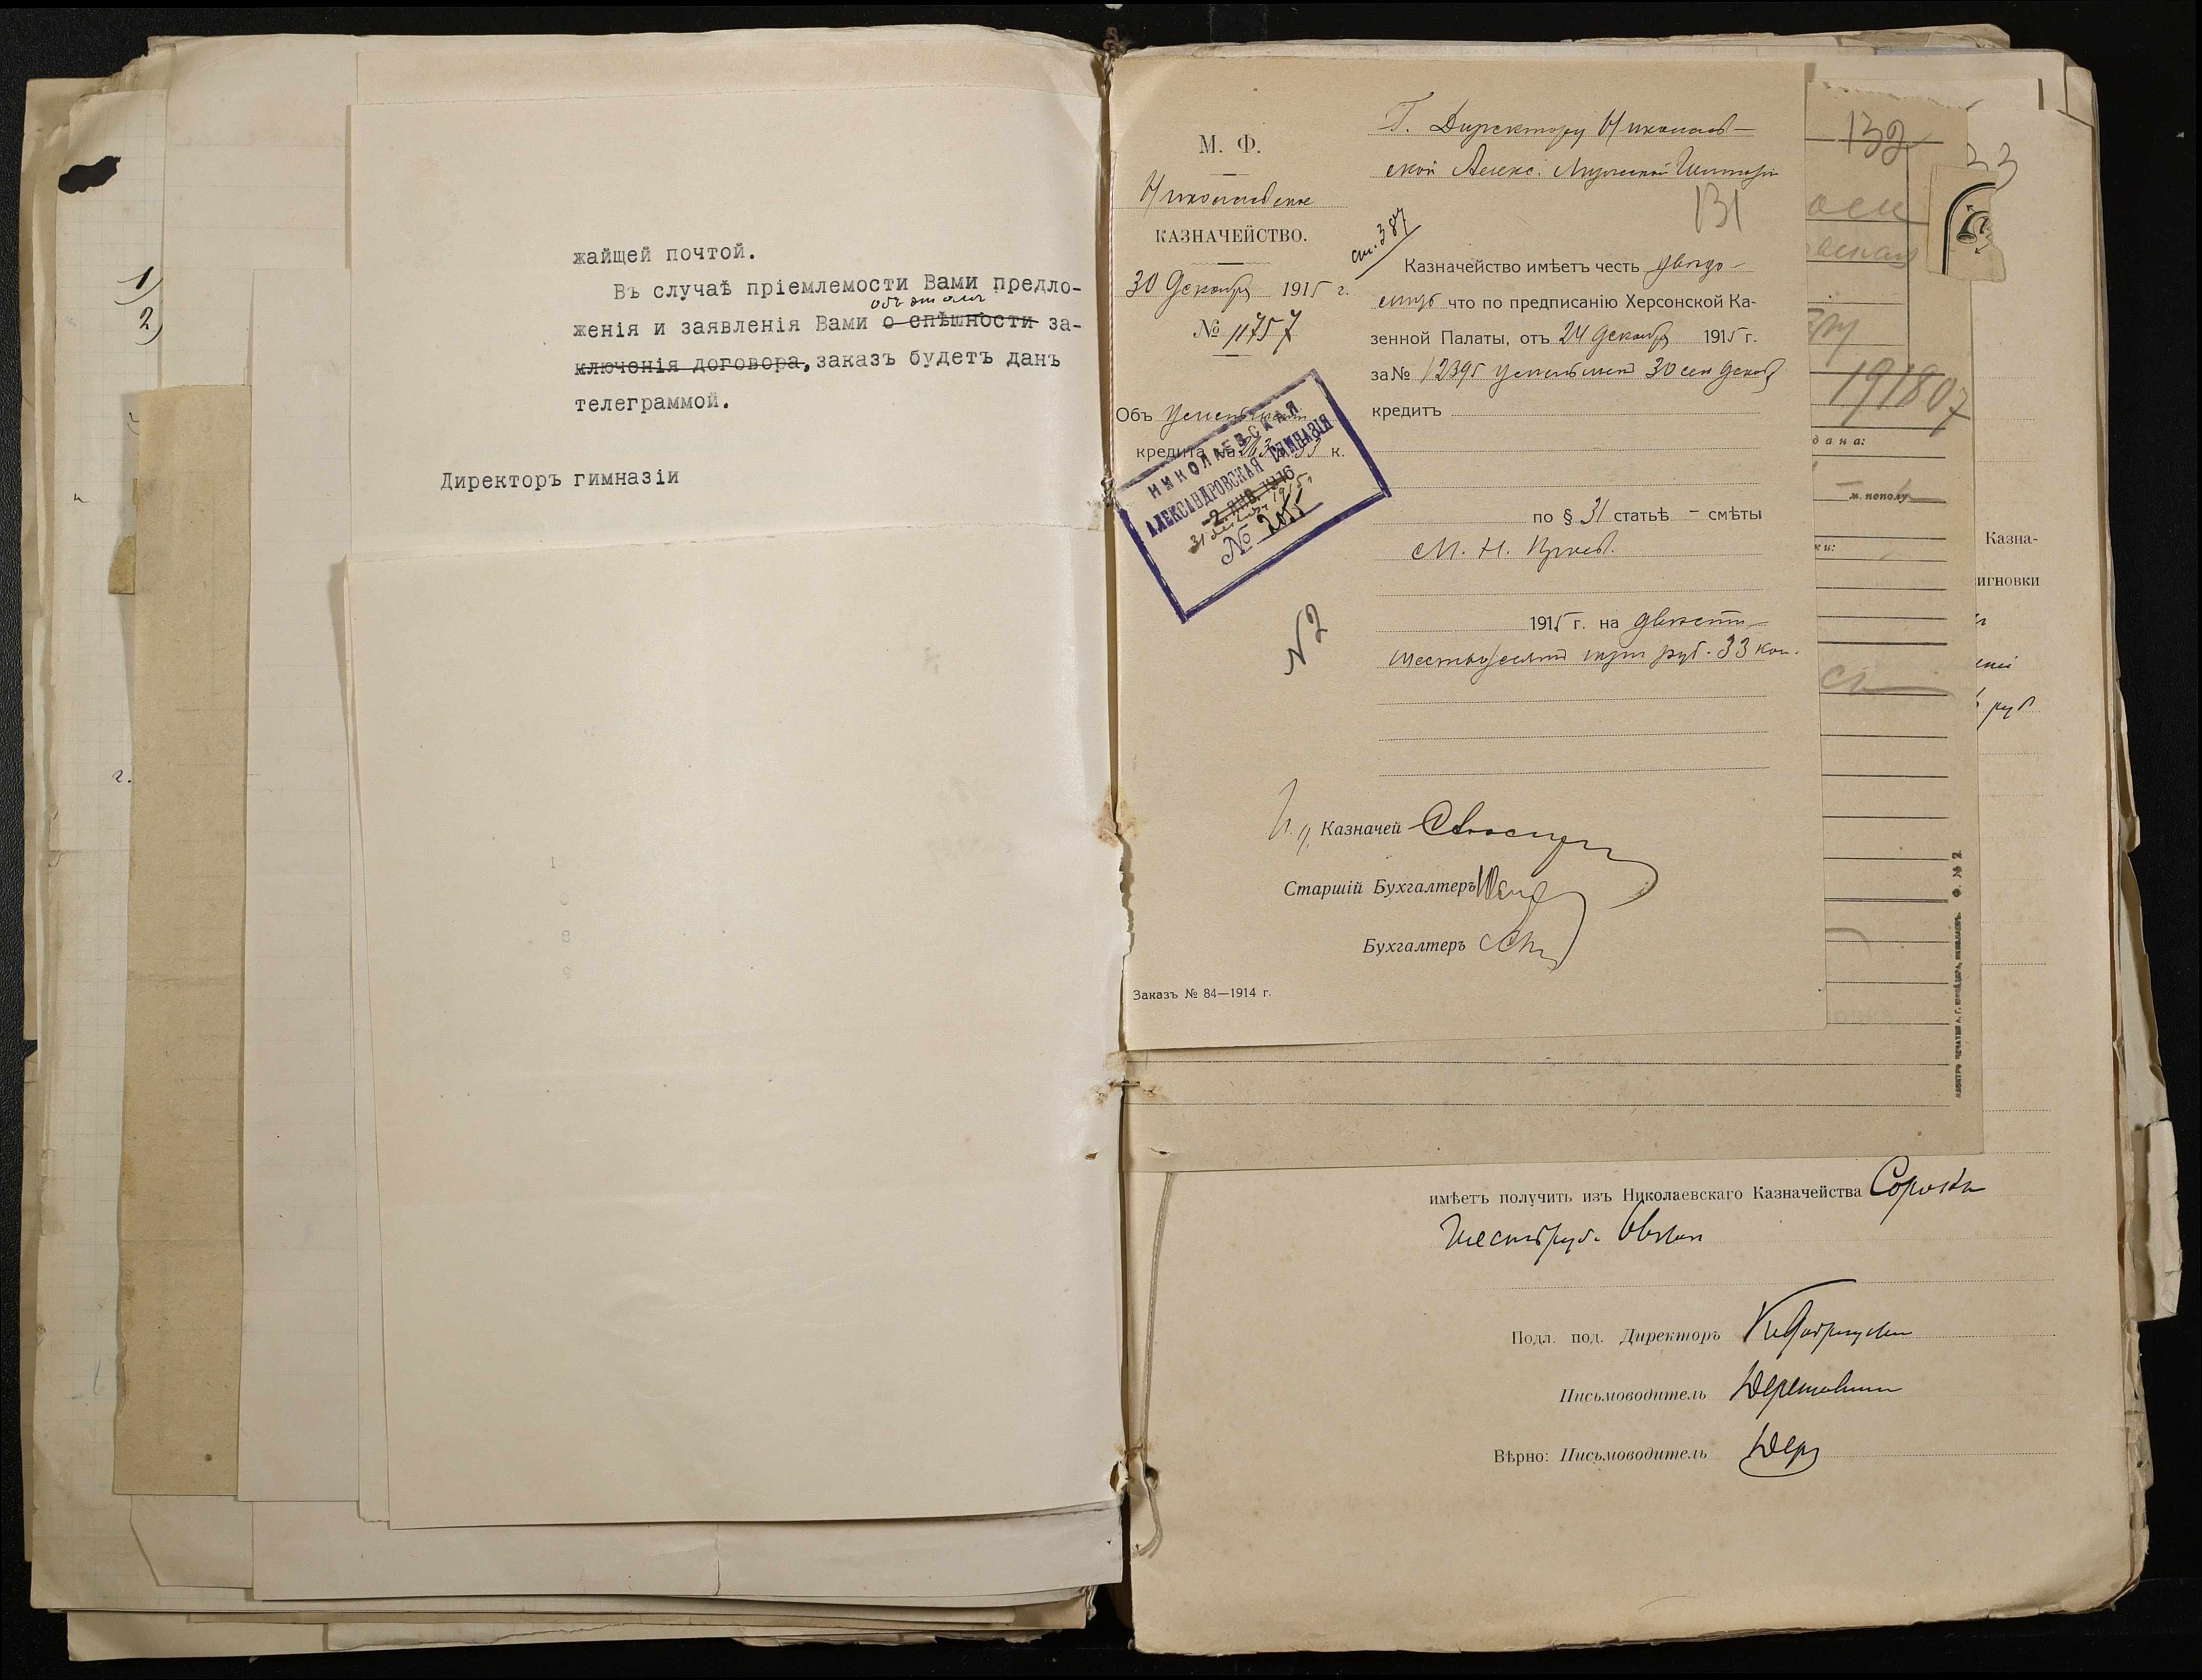 1)
2)
жайщей почтой.
Въ случаѣ пріемлемости Вами предло-
объ этомъ
женія и заявленія Вами о спѣшности за-
ключенія договора, заказъ будетъ данъ
телеграммой.
Директоръ гимназіи
г.
М. Ф.
Николаевское
КАЗНАЧЕЙСТВО.
30 Декабря 1915 г.
№ 11757
Объ
кредита на 263 р. 33 к.
НИКОЛАЕВСКАЯ
АЛЕКСАНДРОВСКАЯ ГИМНАЗІЯ
2 ЯНВ. 1916
31 1915 г.
№ 2055
№2
Г. Директору Николаев-
ской Алекс. Мужской Гимназіи
131
ст. 387
Казначейство имѣетъ честь увѣдо-
мить что по предписанію Херсонской Ка-
зенной Палаты, отъ 24 Декабря 1915 г.
за № 12395 уменьшенъ 30 сего Декабря
кредитъ
по § 31 статьѣ - смѣты
М. Н. Просв.
1915 г. на двѣсти
шестьдесятъ три руб. 33 коп.
И. д. Казначей
Старшій Бухгалтеръ
Бухгалтеръ
Заказъ № 84—1914 г.
132
191807
дана:
м. пополу
ки:
Ф. № 2.
Казна-
игновки
руб
имѣетъ получить изъ Николаевскаго Казначейства Сорокъ
шесть руб.
Подл. под. Директоръ
Письмоводитель
Вѣрно: Письмоводитель